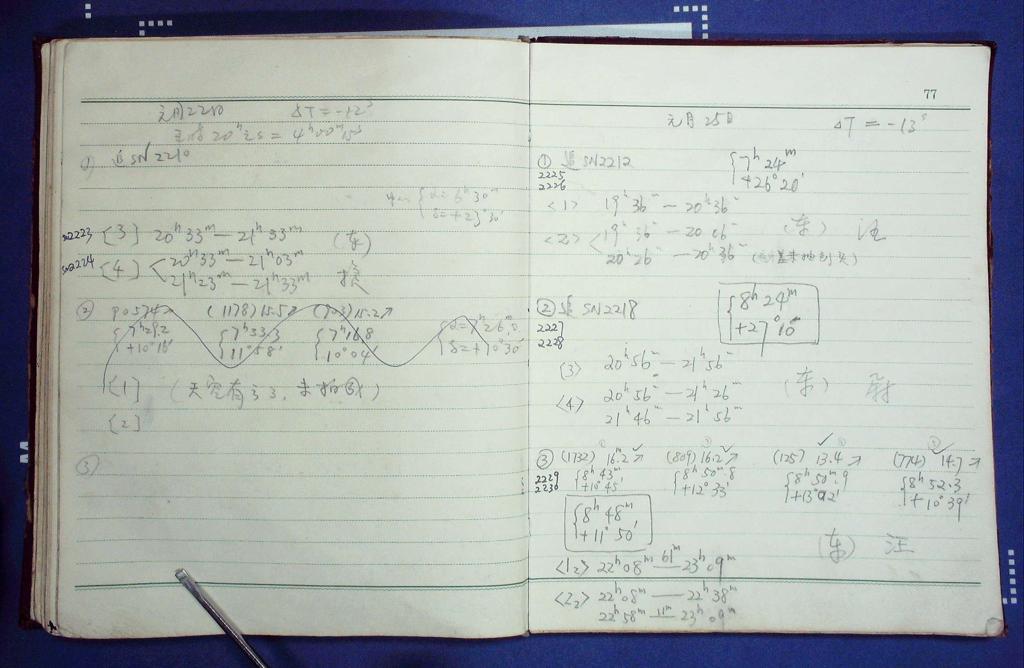 元月22日 ΔT = -12ˢ
20ʰ = 4ʰ00ᵐ15ˢ
① 追 SN2210
{α = 6ʰ30ᵐ
δ = +23°30′
SN2223 [3] 20ʰ33ᵐ — 21ʰ33ᵐ (东)
SN2224 [4] < 20ʰ33ᵐ — 21ʰ03ᵐ
21ʰ23ᵐ — 21ʰ33ᵐ
② (1178) 15.5↗ 15.2↗
{7ʰ29.2
+10°16′
{7ʰ33.3
11°58′
{7ʰ16.8
10°04′
{α = 7ʰ26ᵐ.0
δ = +10°30′
[1] (天空有云,未拍
[2]
③
77
元月25日 ΔT = -13ˢ
① 追 SN2212 {7ʰ24ᵐ
+26°20′
2225
2226
<1> 19ʰ36ᵐ — 20ʰ36ᵐ
<2> < 19ʰ36ᵐ — 20ʰ06ᵐ (东) 汪
20ʰ26ᵐ — 20ʰ36ᵐ
② 追 SN2218 {8ʰ24ᵐ
+27°10′
2227
2228
<3> 20ʰ56ᵐ — 21ʰ56ᵐ
<4> 20ʰ56ᵐ — 21ʰ26ᵐ (东)
21ʰ46ᵐ — 21ʰ56ᵐ
③ (1732) 16.2↗ (809) 16.2↗ (125) 13.4↗ (774) 14.7↗
2229
2230
{8ʰ43ᵐ
+10°45′
{8ʰ50ᵐ.8
+12°33′
{8ʰ50ᵐ.9
+13°92′
{8ʰ52.3
+10°39′
{8ʰ48ᵐ
+11°50′
(东) 汪
<1₂> 22ʰ08ᵐ —61ᵐ— 23ʰ09ᵐ
<2₂> 22ʰ08ᵐ — 22ʰ38ᵐ
22ʰ58ᵐ —11ᵐ— 23ʰ09ᵐ